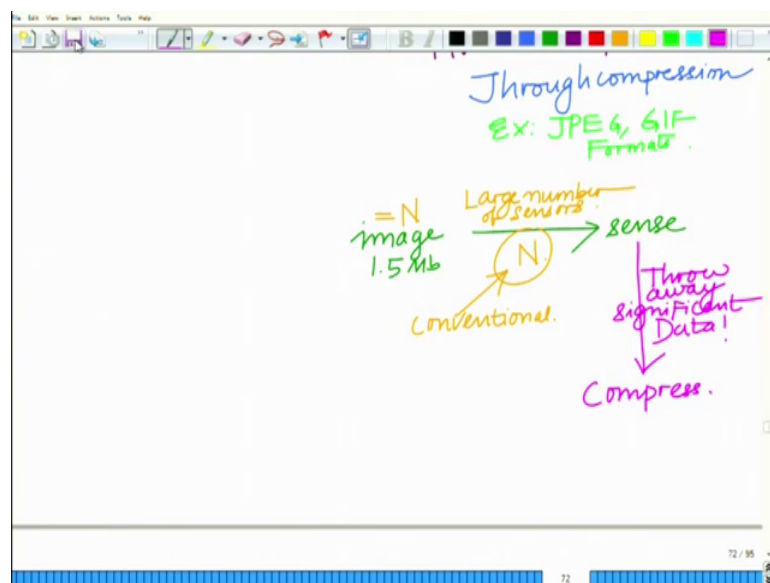 File Edit View Insert Actions Tools Help
B I
Through compression
Ex: JPEG, GIF
Formats.
= N
image
1.5 Mb
Large number
of sensors.
N.
sense
Conventional.
Throw
away
significant
Data!
Compress.
72 / 95
72